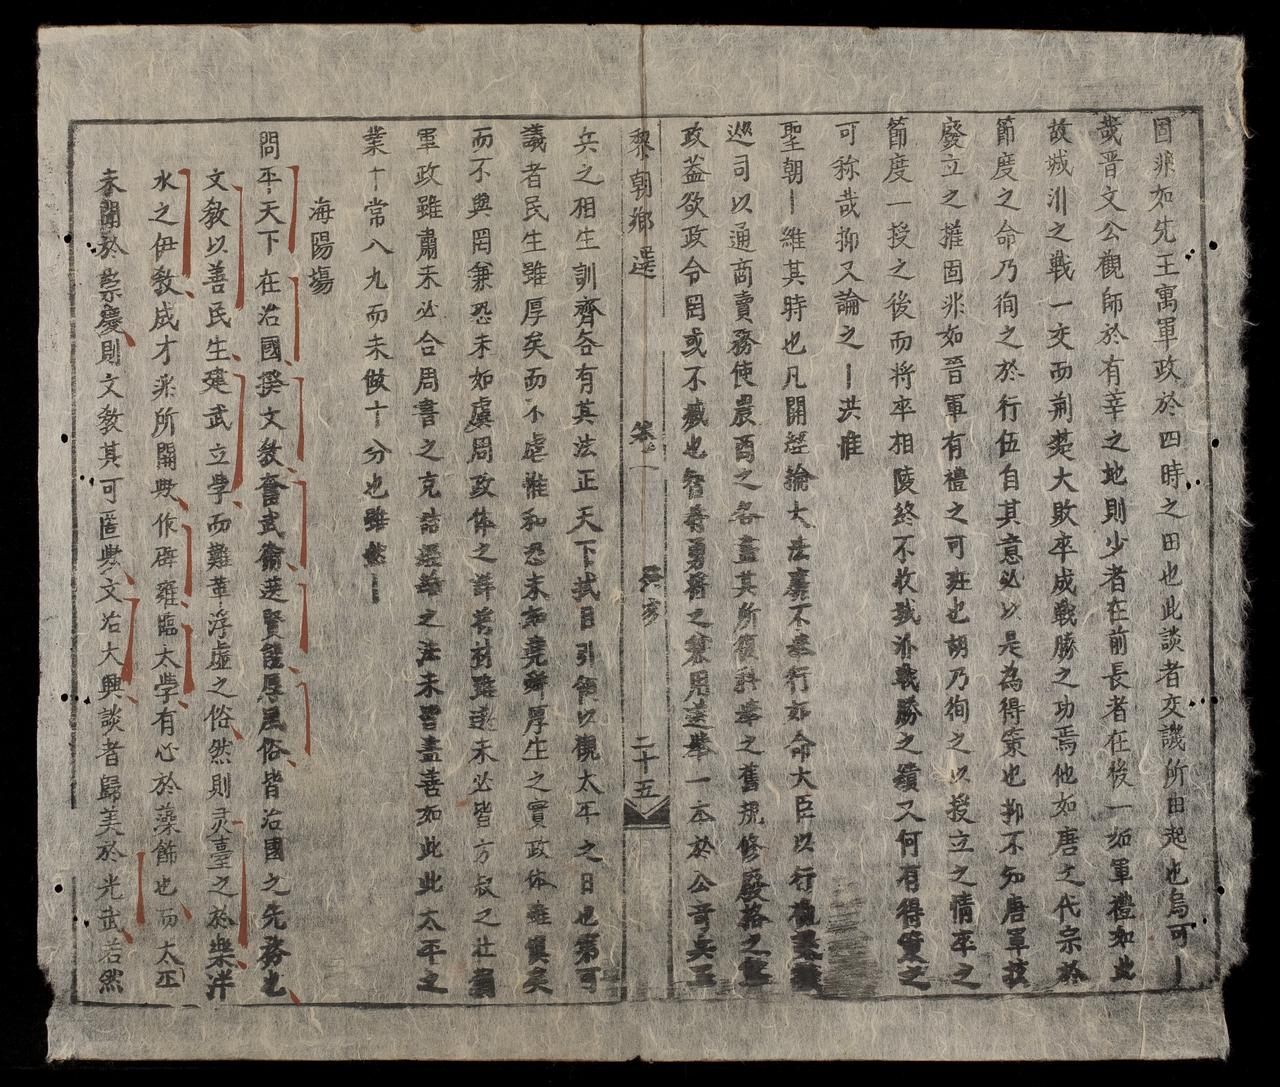 固非如先王寓軍政於四時之田也此談者交譏所由起也烏可丨
哉晋文公觀師於有莘之地則少者在前長者在後一如軍禮如此
故城濮之戰一交而荆楚大敗卒成戰勝之功焉他如唐之代宗於
節度之命乃徇之於行伍自其意必以是為得策也抑不知唐軍
廢立之權固非如晉軍有禮之可班也胡乃徇之以授立之情卒之
節度一授之後而将卒相陵終不收戰勝之績又何有得策之
可称哉抑又論之丨洪惟
聖朝丨維其時也凡開經綸大法莫不奉行如命大臣以行
巡司以通商賣務使農商之各盡其所復科舉之舊規修廢格之
政蓋欲政令罔或不臧也智勇之用選舉一本於公
黎朝鄉選
卷一
二十五
兵之相生訓齊各有其法正天下拭目引領以觀太平之日也第可
議者民生雖厚矣而不虐惟和恐未如堯舜厚生之實政体雖慎矣
而不與罔兼恐未如虞周政体之詳考雖選未必皆方叔之壮
軍政雖肅未必合周書之克詰經之法未皆盡善如此此太平之
業十常八九而未做十分也雖然丨
海陽塲
問平天下在治國撰文教奮武衛選賢能厚風俗皆治國之先務也
文教以善民生建武立學而難革浮虛之俗然則灵臺之於樂泮
水之伊教成才果所關歟作辟雍臨太學有心於藻飾也而太平
未聞於崇慶則文教其可匽歟文治大興談者歸美於光武若然